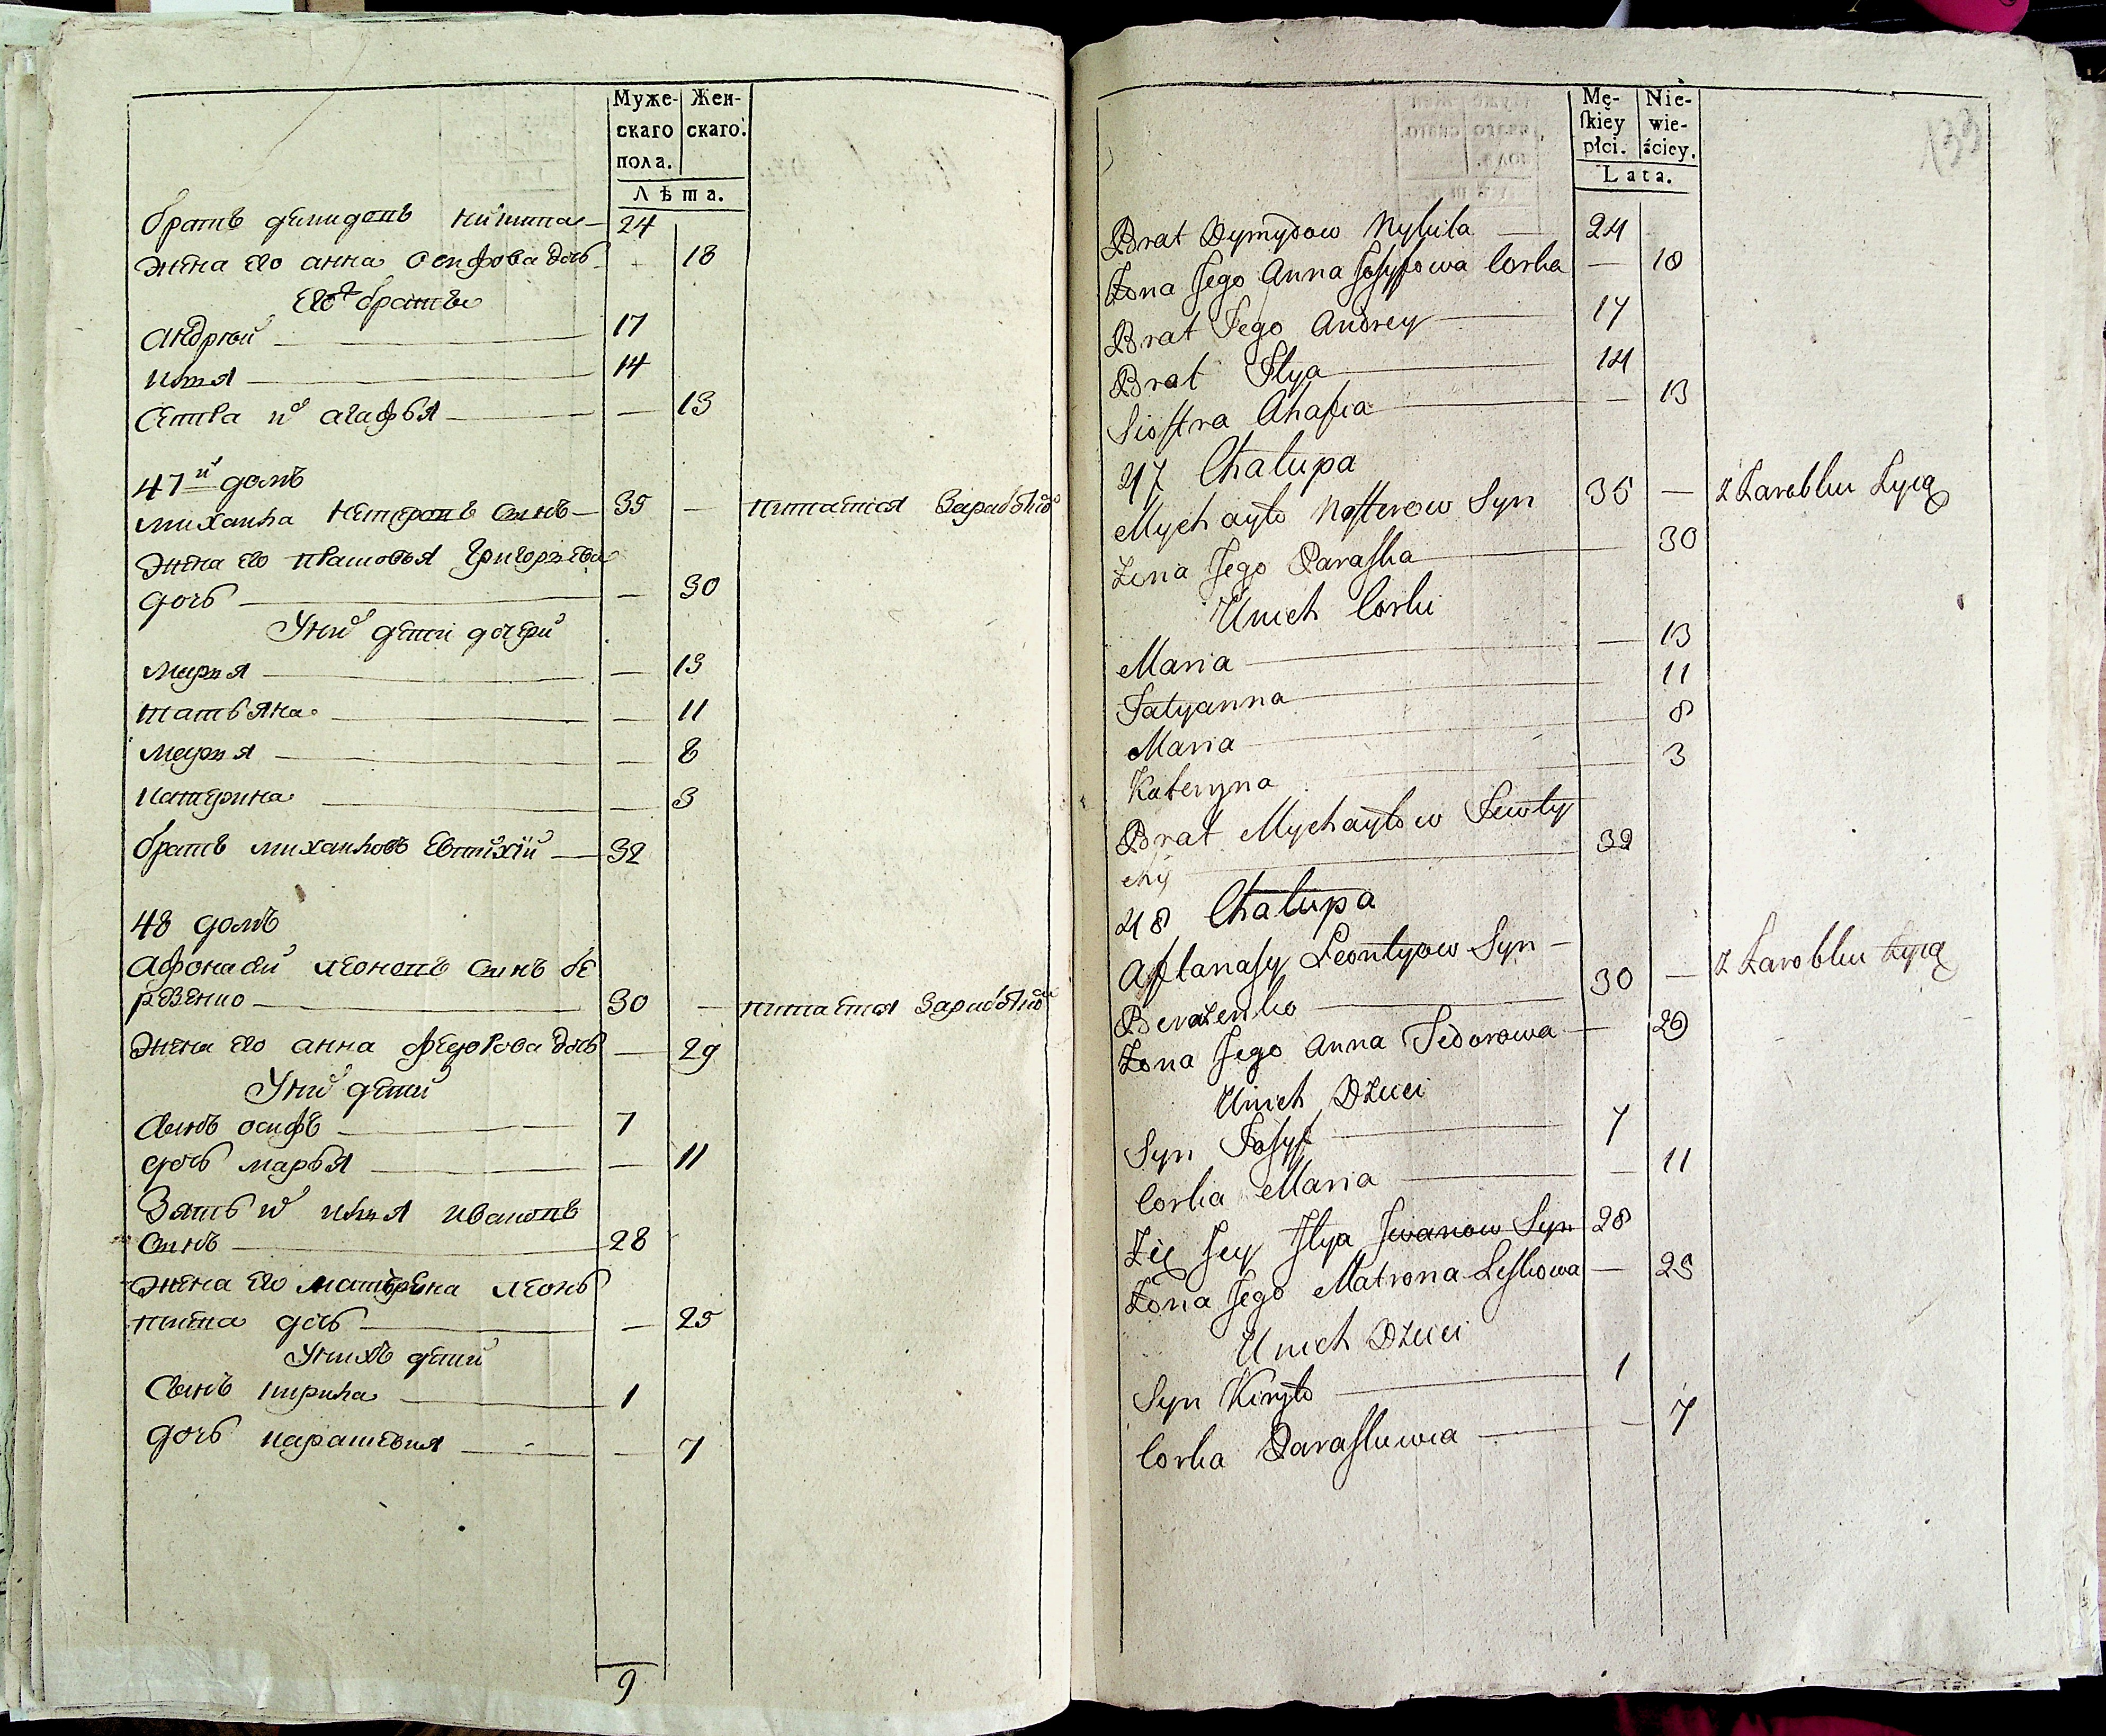 Муже- Жен-
скаго скаго.
пола.
Лѣта.
братъ демидовъ никита — 24
жена его анна осифова дочь — 18
его братья
андрѣй — 17
илья — 14
сестра их агафья — — 13
47й домъ
михаила нестеровъ сынъ — 35 — питается заработкомъ
жена его прасковья григорьева
дочь — — 30
У них дети дочери
марья — — 13
татьяна — — 11
марья — — 8
катерина — — 3
братъ михаиловъ Евтихій — 32
48 домъ
Афонасей леоновъ сынъ бе
резенко — 30 — питается заработкомъ
жена его анна федорова дочь — 29
У них дети
сынъ осифъ — 7
дочь марья — — 11
Зять их илья ивановъ
сынъ — 28
жена его матрона леонь
тиева дочь — — 25
У нихъ дети
Сынъ кирила — 1
дочь парасковия — — 7
9
133
Mę- Nie-
ſkiey wie-
płci. ściey.
Lata.
Brat Dymydow Nykita — 24
Żona Jego Anna Josypowa Corka — 18
Brat Jego Andrey — 17
Brat Ilya — 14
Siostra Ahafia — 13
47 Chalupa
Mychayło Nesterow Syn 35 — z Zarobku Żyią
Żona Jego Paraska — 30
U nich Corki
Maria — 13
Tatyanna 11
Maria — 8
Kateryna 3
Brat Mychayłow Jewty
chy — 32
48 Chalupa
Aftanasy Leontyow Syn —
Berezenko — 30 — z Zarobku Żyią
Żona Jego Anna Fedorowa — 29
U nich Dzieci
Syn Josyf — 7
Corka Maria — — 11
Zięć Jey Ilya Jwanow Syn 28
Żona Jego Matrona Leskowa — 25
U nich Dzieci
Syn Kiryło — 1
Corka Paraskiewia — — 7